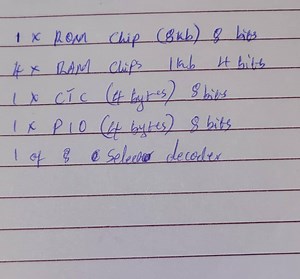 1 x ROM chip (8kb) 8 bits
4 x RAM chips 1kb 4 bits
1 x CTC (4 bytes) 8 bits
1 x PIO (4 bytes) 8 bits
1 of 8 decoder